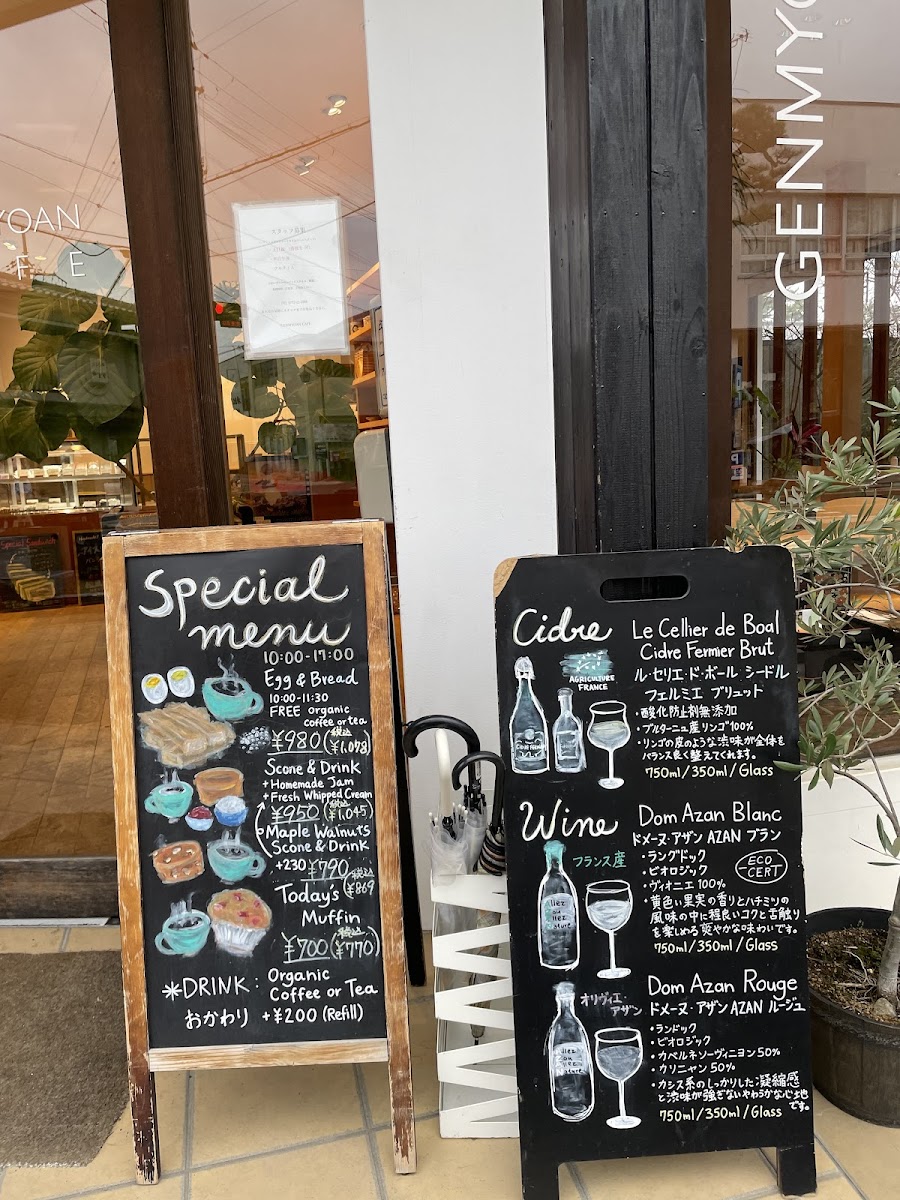 YOAN
F E
GENMYO
Special
menu
10:00-17:00
Egg & Bread
10:00-11:30
FREE organic
coffee or tea
¥980 (税込 ¥1,078)
Scone & Drink
+Homemade Jam
+Fresh Whipped Cream
¥950 (税込 ¥1,045)
Maple Walnuts
Scone & Drink
+230 ¥790 (税込 ¥869)
Today's
Muffin
¥700 (税込 ¥770)
*DRINK: Organic
Coffee or Tea
おかわり +¥200 (Refill)
Cidre
AGRICULTURE
FRANCE
Le Cellier de Boal
Cidre Fermier Brut
ル・セリエ・ド・ボール シードル
フェルミエ ブリュット
・酸化防止剤無添加
・ブルターニュ産リンゴ100%
・リンゴの皮のような渋味が全体を
バランス良く整えてくれます。
750ml/350ml/Glass
Wine
フランス産
Dom Azan Blanc
ドメーヌ・アザン AZAN ブラン
・ラングドック
・ビオロジック
・ヴィオニエ 100%
ECO
CERT
・黄色い果実の香りとハチミツの
風味の中に程良いコクと苦触り
を楽しめる爽やかな味わいです。
750ml/350ml/Glass
オリヴィエ・
アザン
Dom Azan Rouge
ドメーヌ・アザン AZAN ルージュ
・ランドック
・ビオロジック
・カベルネソーヴィニヨン50%
・カリニャン 50%
・カシス系のしっかりした凝縮感
と渋味が強ぎないやわらかな心地
です。
750ml/350ml/Glass